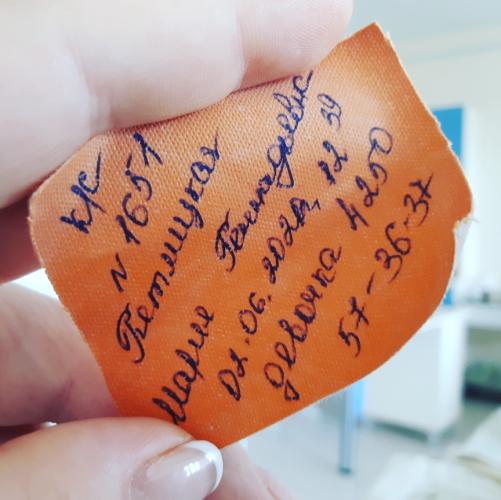 к/с
N 1651
Петлицкая
Мария Геннадьевна
02.06.2021г. 12 39
девочка 4250
57-36-37